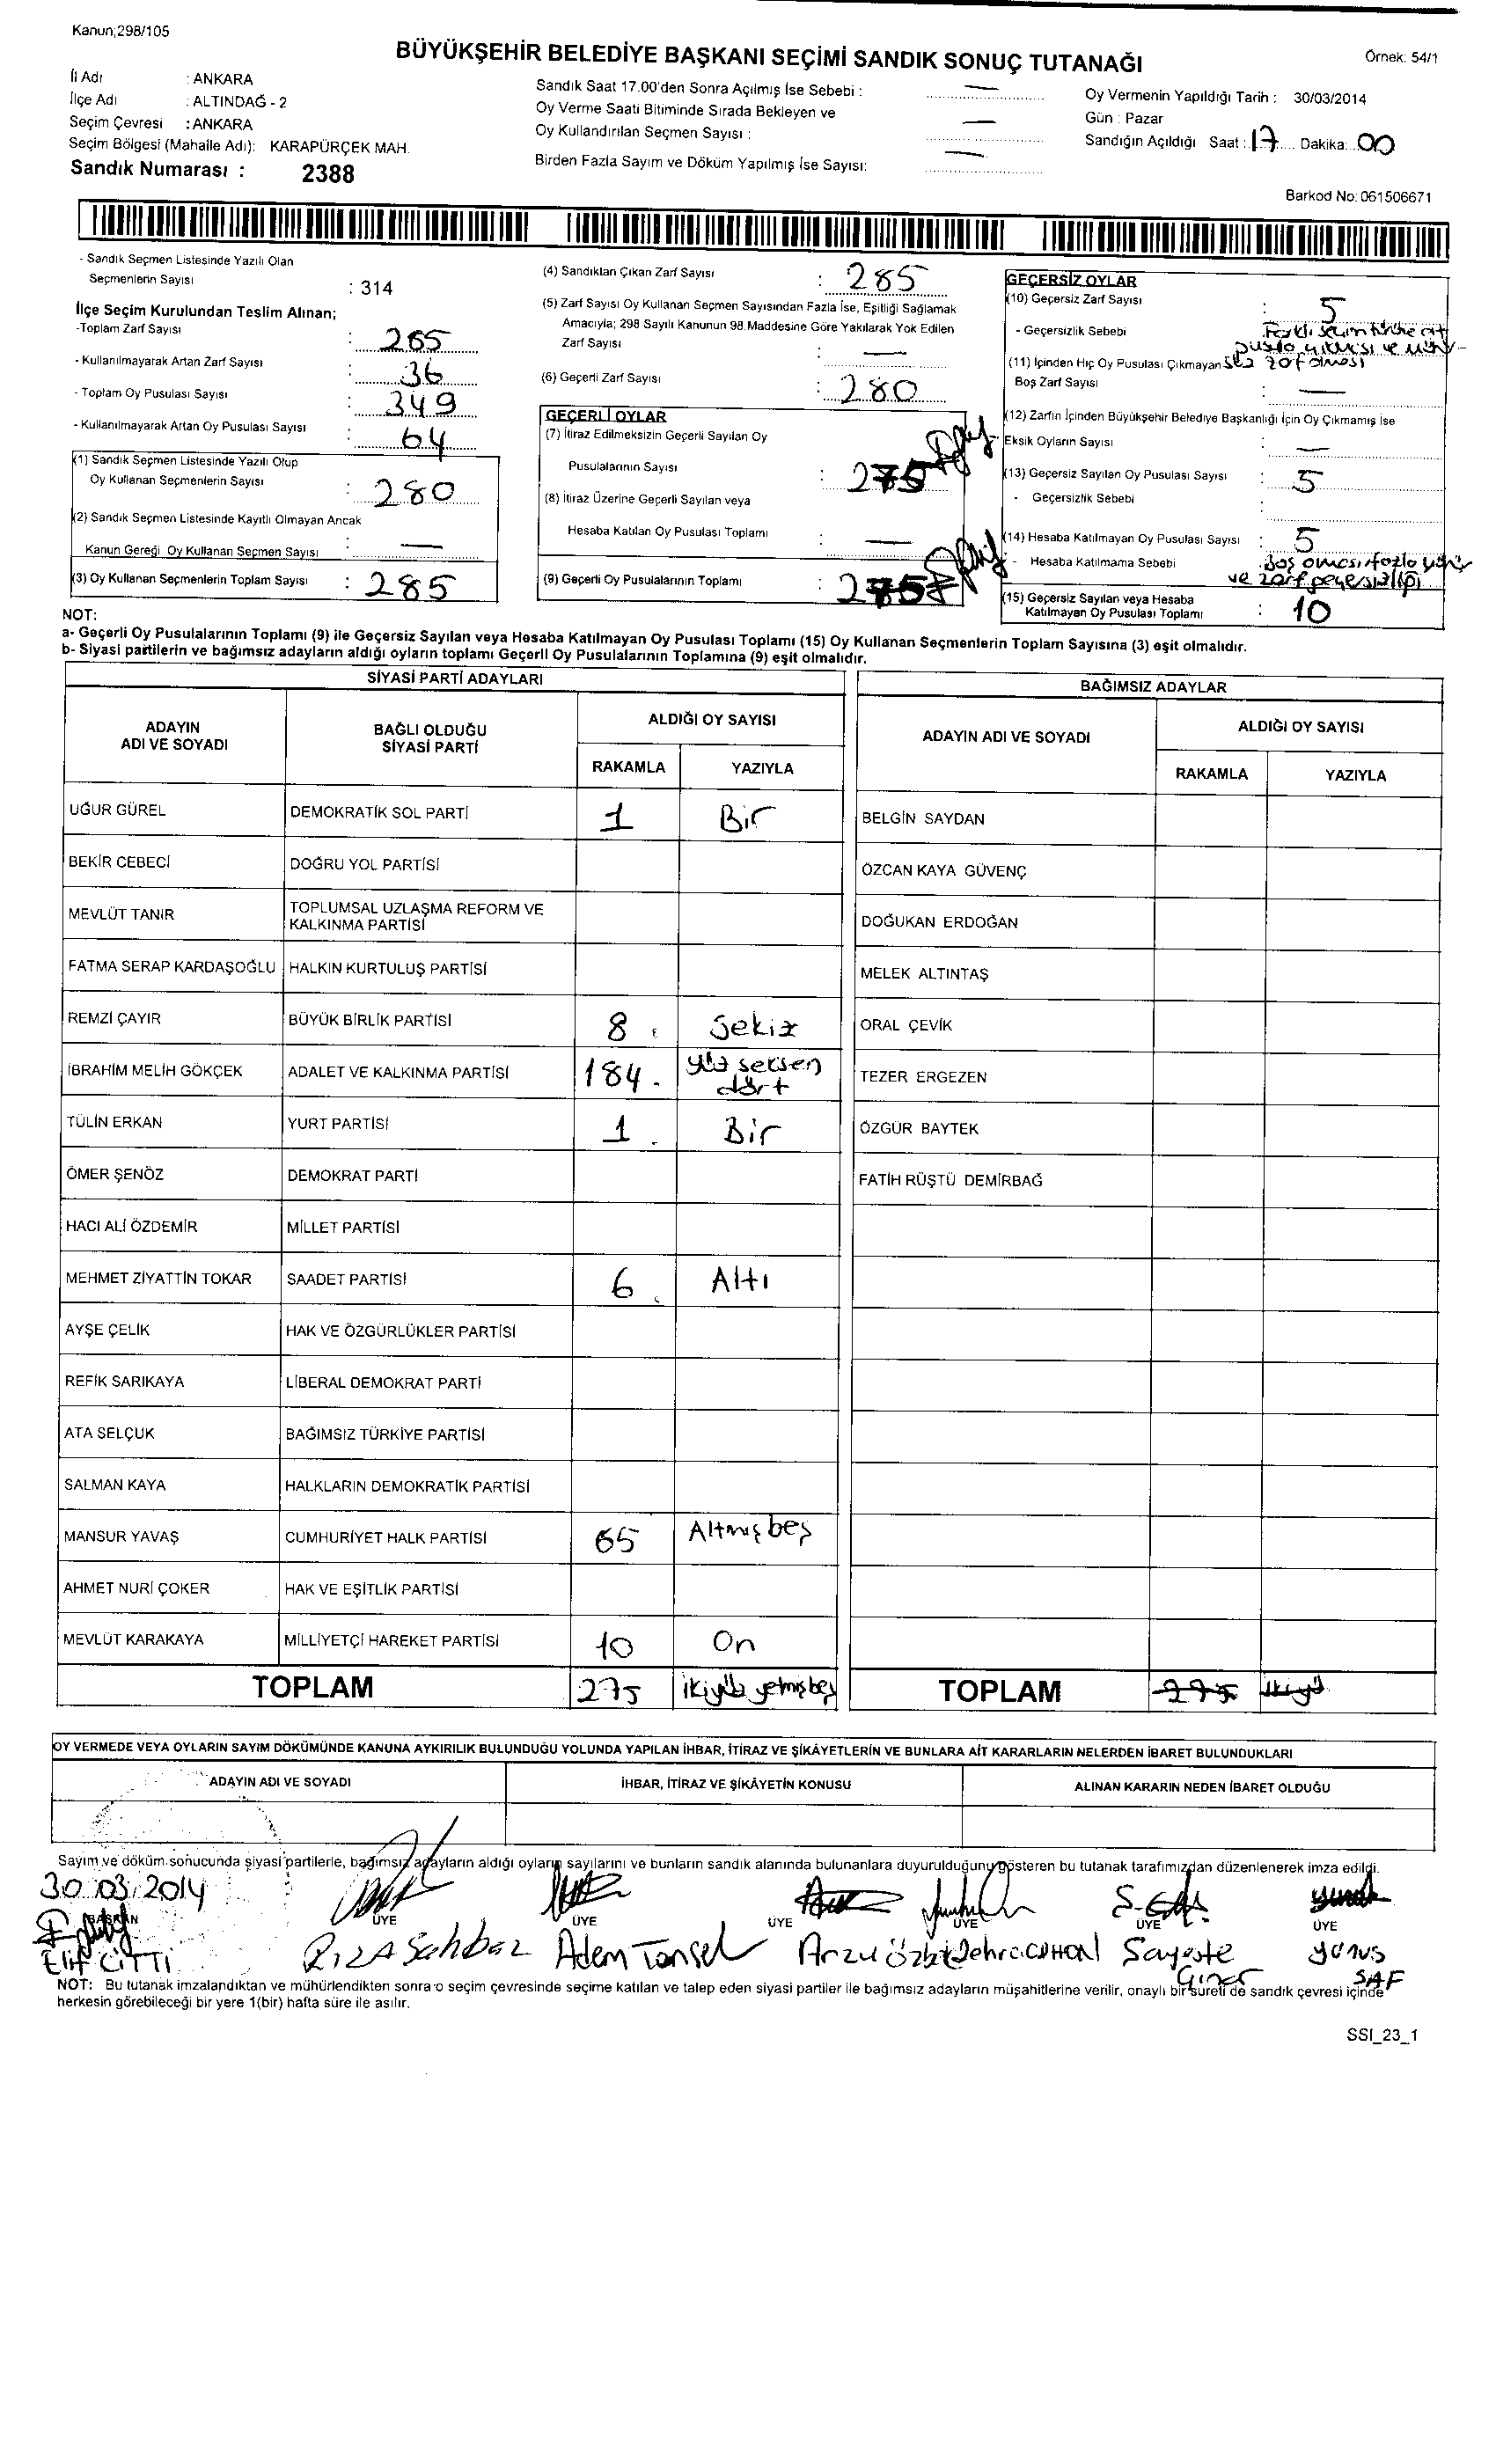 Kanun;298/105
BÜYÜKŞEHİR BELEDİYE BAŞKANI SEÇİMİ SANDIK SONUÇ TUTANAĞI
Örnek: 54/1
İl Adı : ANKARA
İlçe Adı : ALTINDAĞ - 2
Seçim Çevresi : ANKARA
Seçim Bölgesi (Mahalle Adı): KARAPÜRÇEK MAH.
Sandık Numarası : 2388
Sandık Saat 17.00'den Sonra Açılmış İse Sebebi : —
Oy Verme Saati Bitiminde Sırada Bekleyen ve
Oy Kullandırılan Seçmen Sayısı : —
Birden Fazla Sayım ve Döküm Yapılmış İse Sayısı: —
Oy Vermenin Yapıldığı Tarih : 30/03/2014
Gün : Pazar
Sandığın Açıldığı Saat : 17 Dakika: 00
Barkod No: 061506671
- Sandık Seçmen Listesinde Yazılı Olan
Seçmenlerin Sayısı : 314
İlçe Seçim Kurulundan Teslim Alınan;
-Toplam Zarf Sayısı :
- Kullanılmayarak Artan Zarf Sayısı : 36
- Toplam Oy Pusulası Sayısı : 349
- Kullanılmayarak Artan Oy Pusulası Sayısı : 64
(1) Sandık Seçmen Listesinde Yazılı Olup
Oy Kullanan Seçmenlerin Sayısı : 280
(2) Sandık Seçmen Listesinde Kayıtlı Olmayan Ancak
Kanun Gereği Oy Kullanan Seçmen Sayısı : —
(3) Oy Kullanan Seçmenlerin Toplam Sayısı : 285
(4) Sandıktan Çıkan Zarf Sayısı : 285
(5) Zarf Sayısı Oy Kullanan Seçmen Sayısından Fazla İse, Eşitliği Sağlamak
Amacıyla; 298 Sayılı Kanunun 98.Maddesine Göre Yakılarak Yok Edilen
Zarf Sayısı : —
(6) Geçerli Zarf Sayısı : 280
GEÇERLİ OYLAR
(7) İtiraz Edilmeksizin Geçerli Sayılan Oy
Pusulalarının Sayısı : 275
(8) İtiraz Üzerine Geçerli Sayılan veya
Hesaba Katılan Oy Pusulası Toplamı : —
(9) Geçerli Oy Pusulalarının Toplamı : 275
GEÇERSİZ OYLAR
(10) Geçersiz Zarf Sayısı : 5
- Geçersizlik Sebebi Farklı seçim türüne ait
pusula çıkması ve mühür-
süz zarf olması
(11) İçinden Hiç Oy Pusulası Çıkmayan
Boş Zarf Sayısı : —
(12) Zarfın İçinden Büyükşehir Belediye Başkanlığı İçin Oy Çıkmamış İse
Eksik Oyların Sayısı : —
(13) Geçersiz Sayılan Oy Pusulası Sayısı : 5
- Geçersizlik Sebebi :
(14) Hesaba Katılmayan Oy Pusulası Sayısı : 5
- Hesaba Katılmama Sebebi : Boş olması fazla
ve zarf geçersizliği
(15) Geçersiz Sayılan veya Hesaba
Katılmayan Oy Pusulası Toplamı : 10
NOT:
a- Geçerli Oy Pusulalarının Toplamı (9) ile Geçersiz Sayılan veya Hesaba Katılmayan Oy Pusulası Toplamı (15) Oy Kullanan Seçmenlerin Toplam Sayısına (3) eşit olmalıdır.
b- Siyasi partilerin ve bağımsız adayların aldığı oyların toplamı Geçerli Oy Pusulalarının Toplamına (9) eşit olmalıdır.
SİYASİ PARTİ ADAYLARI
ADAYIN ADI VE SOYADI
BAĞLI OLDUĞU SİYASİ PARTİ
ALDIĞI OY SAYISI
RAKAMLA YAZIYLA
UĞUR GÜREL DEMOKRATİK SOL PARTİ 1 Bir
BEKİR CEBECİ DOĞRU YOL PARTİSİ
MEVLÜT TANIR TOPLUMSAL UZLAŞMA REFORM VE KALKINMA PARTİSİ
FATMA SERAP KARDAŞOĞLU HALKIN KURTULUŞ PARTİSİ
REMZİ ÇAYIR BÜYÜK BİRLİK PARTİSİ 8 Sekiz
İBRAHİM MELİH GÖKÇEK ADALET VE KALKINMA PARTİSİ 184 yüz seksen dört
TÜLİN ERKAN YURT PARTİSİ 1 Bir
ÖMER ŞENÖZ DEMOKRAT PARTİ
HACI ALİ ÖZDEMİR MİLLET PARTİSİ
MEHMET ZİYATTİN TOKAR SAADET PARTİSİ 6 Altı
AYŞE ÇELİK HAK VE ÖZGÜRLÜKLER PARTİSİ
REFİK SARIKAYA LİBERAL DEMOKRAT PARTİ
ATA SELÇUK BAĞIMSIZ TÜRKİYE PARTİSİ
SALMAN KAYA HALKLARIN DEMOKRATİK PARTİSİ
MANSUR YAVAŞ CUMHURİYET HALK PARTİSİ 65 Altmışbeş
AHMET NURİ ÇOKER HAK VE EŞİTLİK PARTİSİ
MEVLÜT KARAKAYA MİLLİYETÇİ HAREKET PARTİSİ 10 On
TOPLAM 275 ikiyüz yetmişbeş
BAĞIMSIZ ADAYLAR
ADAYIN ADI VE SOYADI
ALDIĞI OY SAYISI
RAKAMLA YAZIYLA
BELGİN SAYDAN
ÖZCAN KAYA GÜVENÇ
DOĞUKAN ERDOĞAN
MELEK ALTINTAŞ
ORAL ÇEVİK
TEZER ERGEZEN
ÖZGÜR BAYTEK
FATİH RÜŞTÜ DEMİRBAĞ
TOPLAM 275 ikiyü
OY VERMEDE VEYA OYLARIN SAYIM DÖKÜMÜNDE KANUNA AYKIRILIK BULUNDUĞU YOLUNDA YAPILAN İHBAR, İTİRAZ VE ŞİKÂYETLERİN VE BUNLARA AİT KARARLARIN NELERDEN İBARET BULUNDUKLARI
ADAYIN ADI VE SOYADI İHBAR, İTİRAZ VE ŞİKÂYETİN KONUSU ALINAN KARARIN NEDEN İBARET OLDUĞU
Sayım ve döküm sonucunda siyasi partilerle, bağımsız adayların aldığı oyların sayılarını ve bunların sandık alanında bulunanlara duyurulduğunu gösteren bu tutanak tarafımızdan düzenlenerek imza edildi.
30.03.2014
BAŞKAN ÜYE ÜYE ÜYE ÜYE ÜYE ÜYE
Elif ÇİTTİ RIZA Sahbaz Adem Tansel Arzu Sayeste Giner yunus SAF
NOT: Bu tutanak imzalandıktan ve mühürlendikten sonra o seçim çevresinde seçime katılan ve talep eden siyasi partiler ile bağımsız adayların müşahitlerine verilir, onaylı bir sureti de sandık çevresi içinde
herkesin görebileceği bir yere 1(bir) hafta süre ile asılır.
SSI_23_1